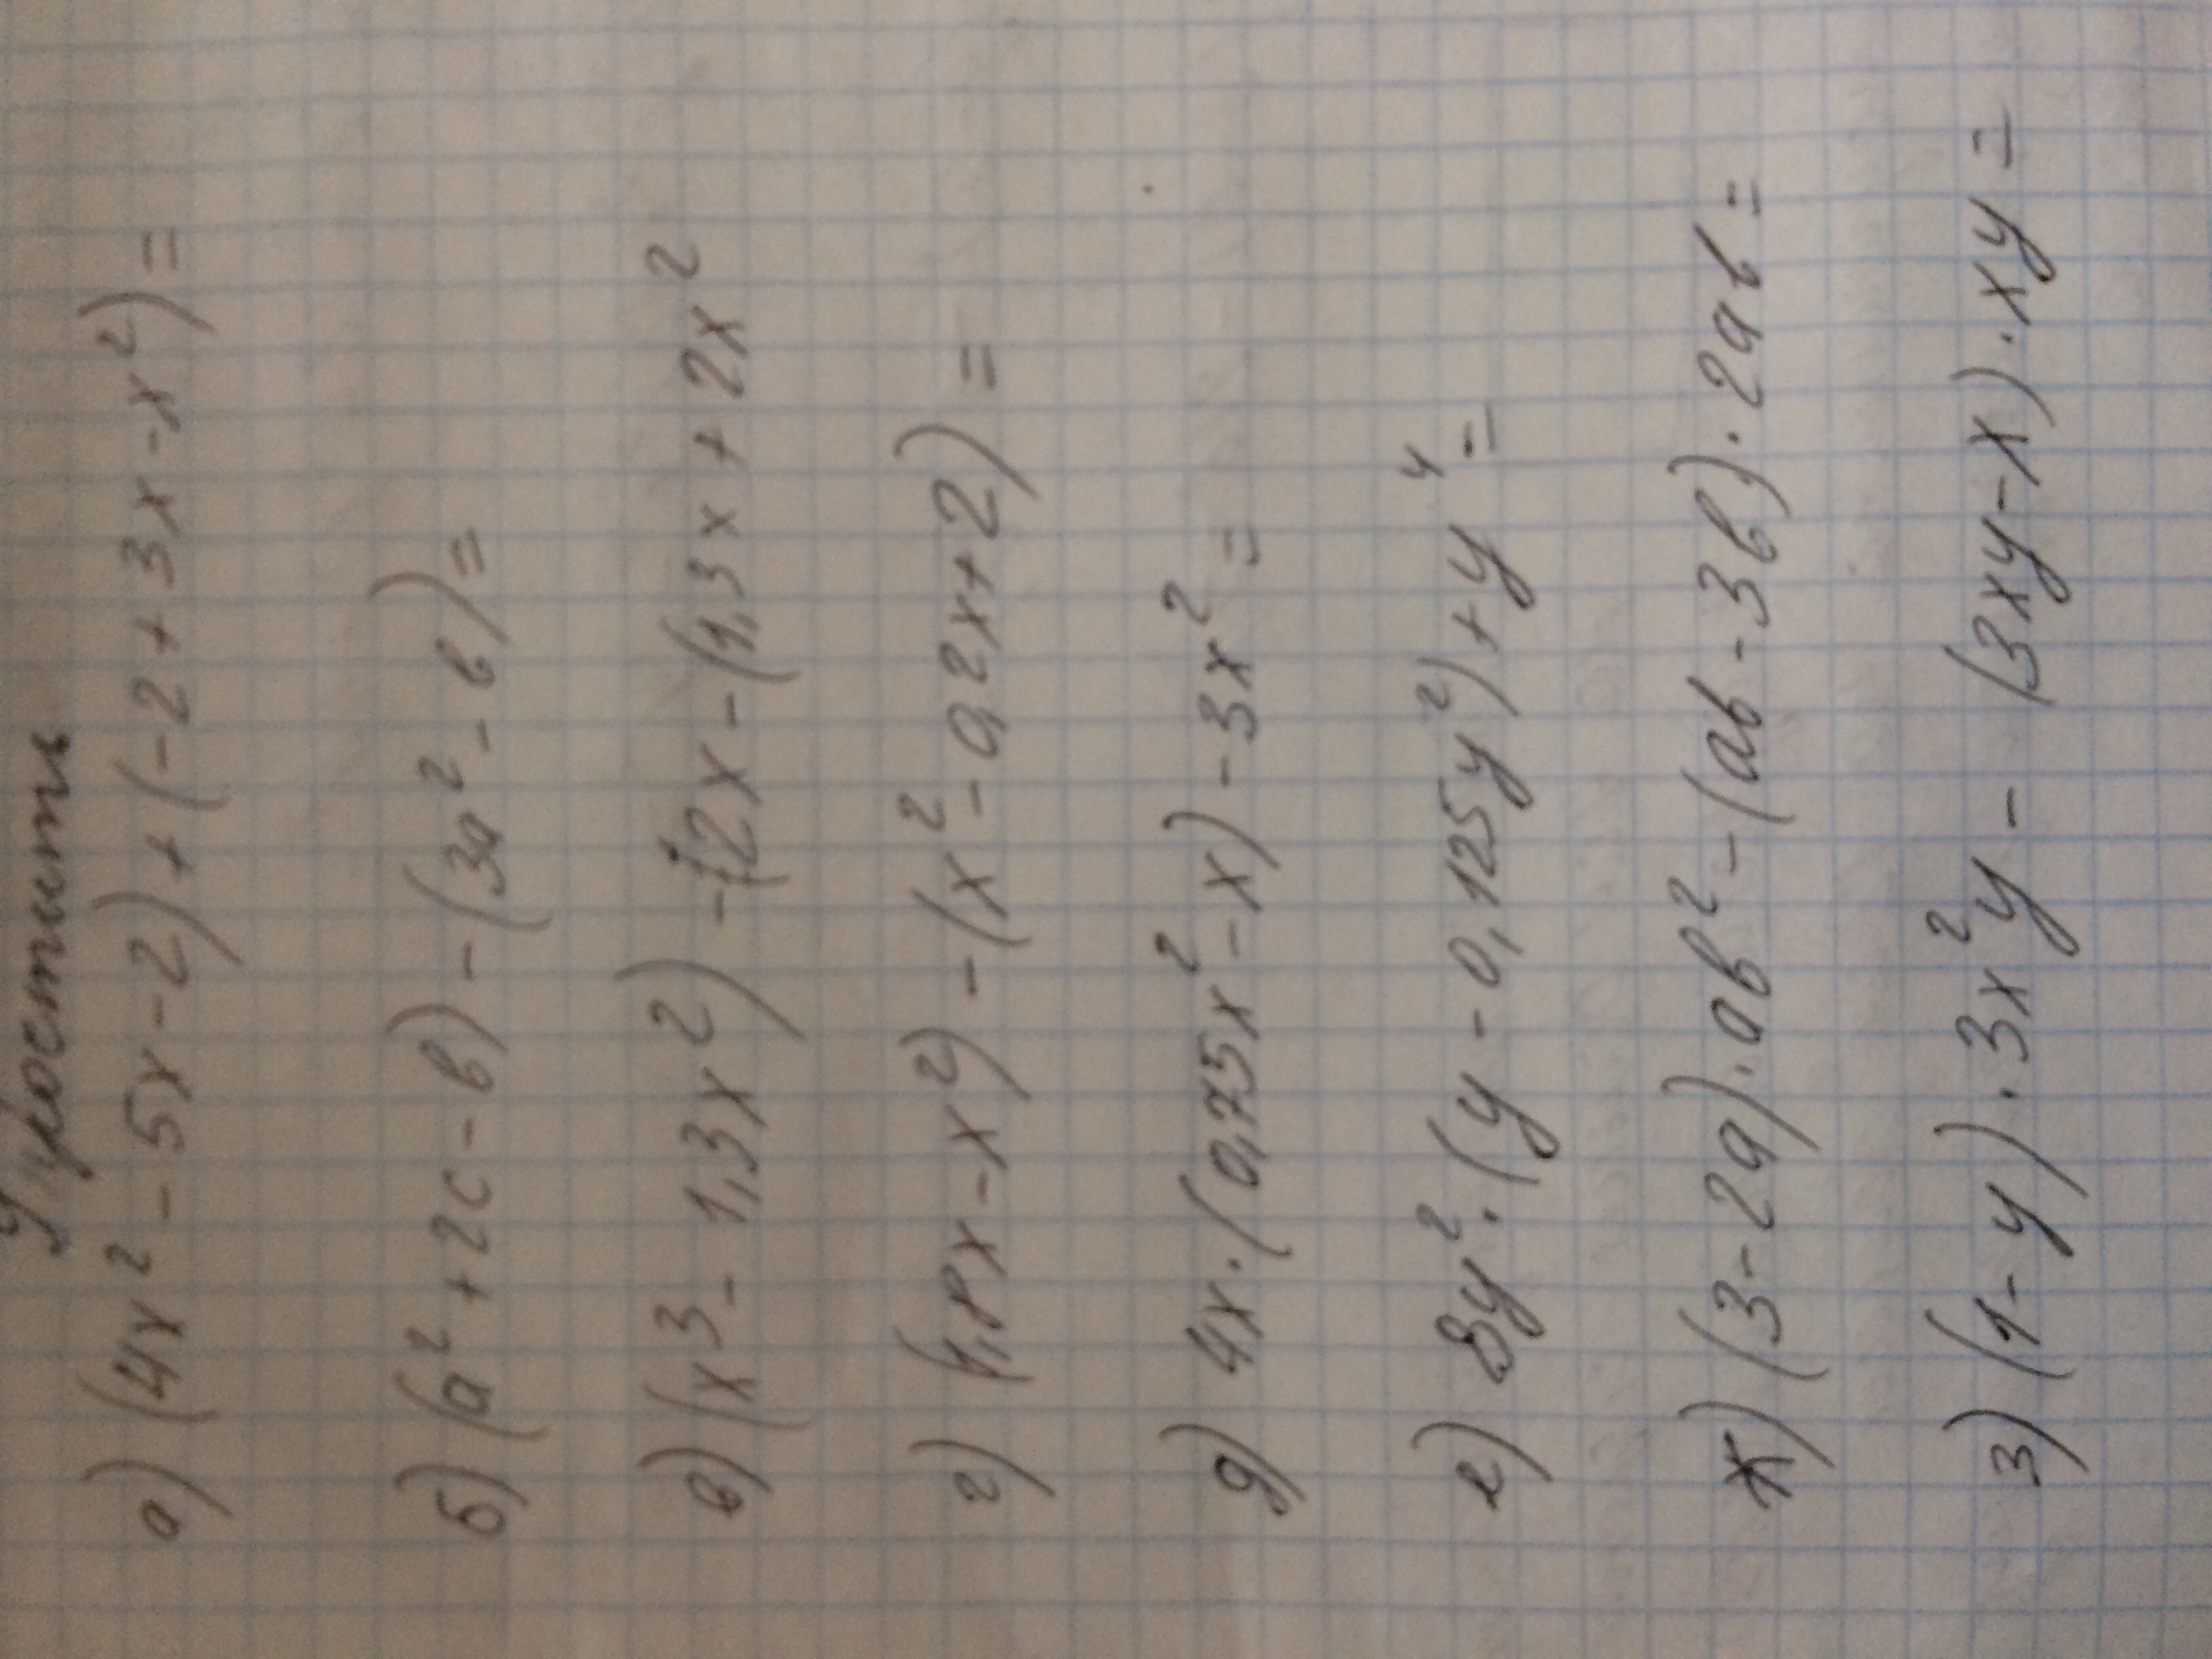 Упростить
а) (4x² - 5x - 2) + (-2 + 3x - x²) =
б) (a² + 2c - в) - (3a² - в) =
в) (x³ - 1,3x²) - (2x - (1,3x + 2x²
г) (1,8x - x²) - (x² - 0,2x + 2) =
д) 4x · (0,75x² - x) - 3x² =
е) 8y² · (y - 0,125y²) + y⁴ =
ж) (3 - 2a) · aв² - (aв - 3в) · 2aв =
з) (1 - y) · 3x²y - (3xy - x) · xy =